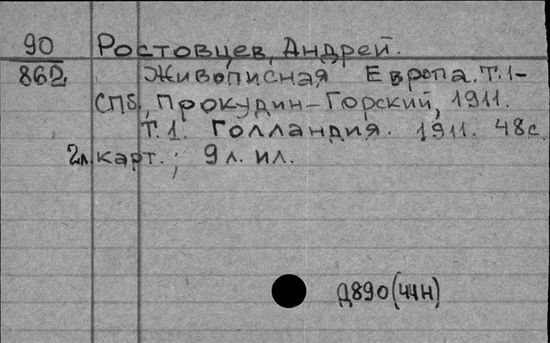 90 Ростовцев, Андрей.
862 Живописная Европа. Т. 1-
СПб., Прокудин-Горский, 1911.
Т. 1. Голландия. 1911. 48 с.
2 л. карт.; 9 л. ил.
Д890(44Н)